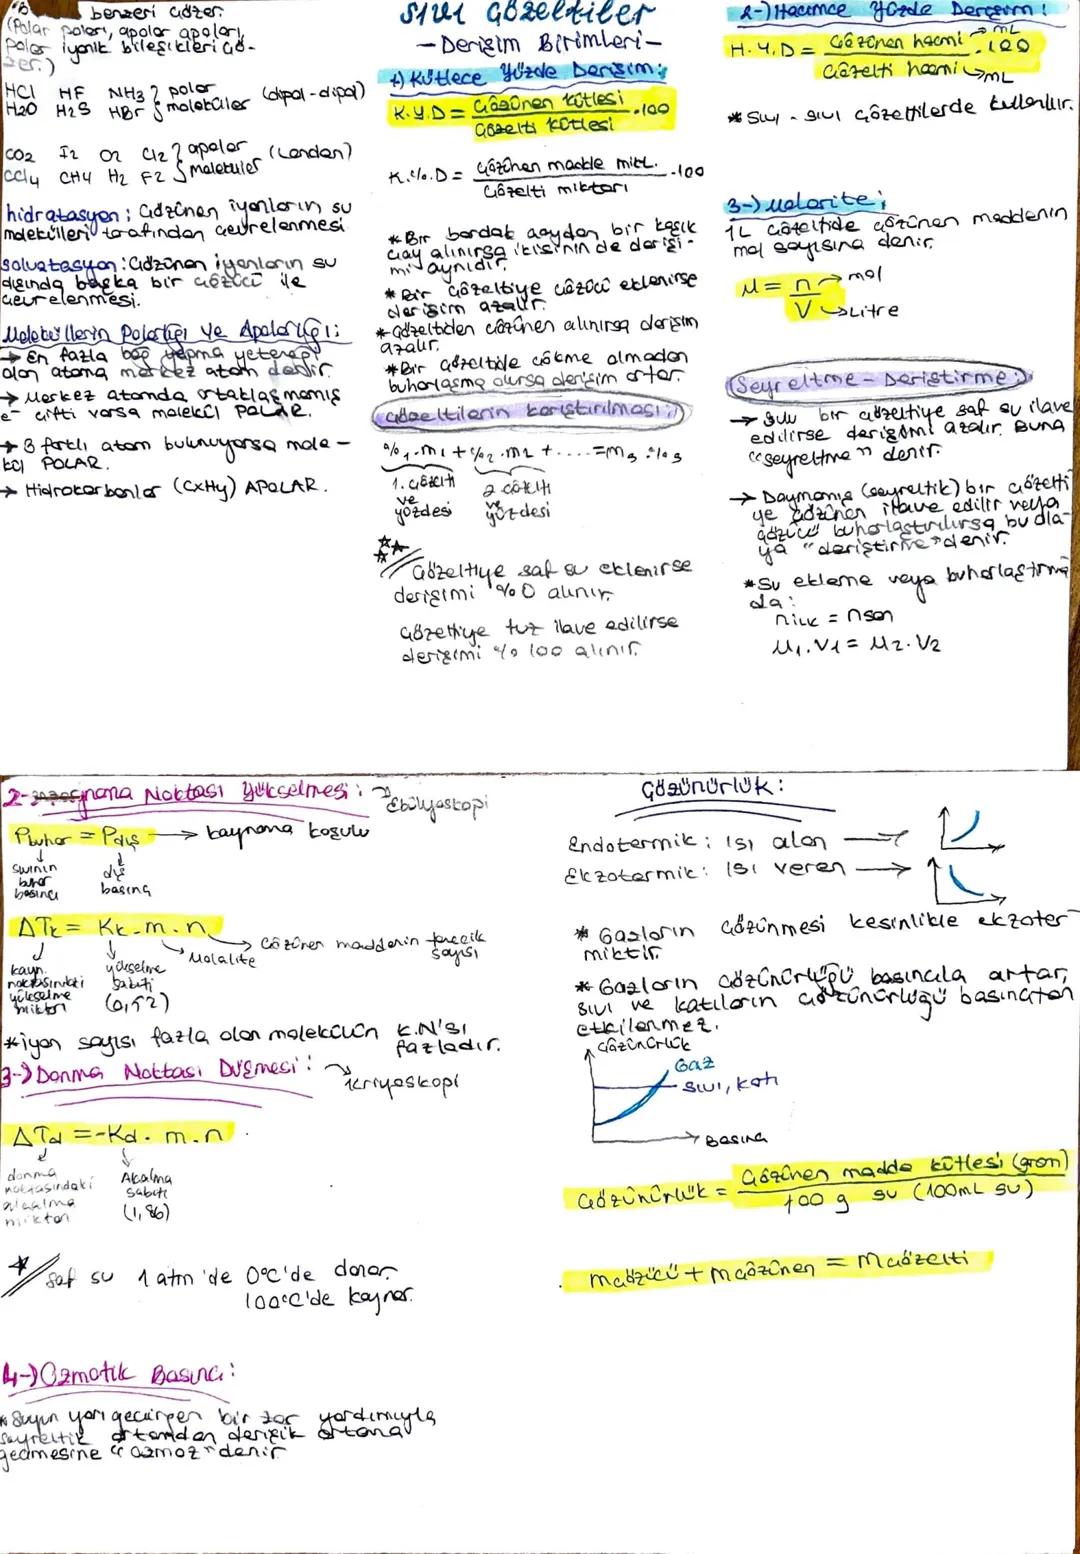 benzeri çözer.
(Polar poları, apolar apoları,
polar iyonik bileşikleri çö-
zer.)
HCl HF NH3 } polar (dipol-dipol)
H2O H2S HBr } moleküller
CO2 I2 O2 Cl2 } apolar (London)
CCl4 CH4 H2 F2 } moleküller
hidratasyon: Çözünen iyonların su
molekülleri tarafından çevrelenmesi
Solvatasyon: Çözünen iyonların su
dışında başka bir çözücü ile
çevrelenmesi.
Moleküllerin Polarlığı ve Apolarlığı:
→ En fazla bağ yapma yeteneği
olan atoma merkez atom denir.
→ Merkez atomda ortaklaşmamış
e⁻ çifti varsa molekül POLAR.
→ 3 farklı atom bulunuyorsa mole-
kül POLAR.
→ Hidrokarbonlar (CxHy) APOLAR.
Sıvı Çözeltiler
- Derişim Birimleri -
1) Kütlece Yüzde Derişim:
K.Y.D = Çözünen kütlesi / Çözelti kütlesi .100
K.%.D = Çözünen madde mikt. / Çözelti miktarı .100
* Bir bardak çaydan bir kaşık
çay alınırsa ikisinin de derişi-
mi aynıdır.
* Bir çözeltiye çözücü eklenirse
derişim azalır.
* Çözeltiden çözünen alınırsa derişim
azalır.
* Bir çözeltide çökme olmadan
buharlaşma olursa derişim artar.
Çözeltilerin karıştırılması:
%1.m1 + %2.m2 + .... = m3.%3
1. çözelti ve yüzdesi
2. çözelti ve yüzdesi
Çözeltiye saf su eklenirse
derişimi %0 alınır.
Çözeltiye tuz ilave edilirse
derişimi %100 alınır.
2-) Hacimce Yüzde Derişim:
H.Y.D = Çözünen hacmi → mL / Çözelti hacmi → mL .100
* Sıvı - sıvı çözeltilerde kullanılır.
3-) Molarite:
1L çözeltide çözünen maddenin
mol sayısına denir.
M = n / V
→ mol
→ Litre
Seyreltme - Deriştirme:
→ Sulu bir çözeltiye saf su ilave
edilirse derişimi azalır. Buna
"seyreltme" denir.
→ Doymamış (seyreltik) bir çözelti
ye çözünen ilave edilir veya
çözücü buharlaştırılırsa bu ola-
ya "deriştirme" denir.
* Su ekleme veya buharlaştırma
da:
nilk = nson
M1.V1 = M2.V2
2- Kaynama Noktası Yükselmesi: → Ebülyoskopi
Pbuhar = Pdış → kaynama koşulu
sıvının buhar basıncı
dış basınç
ΔTk = Kk.m.n
→ Çözünen maddenin tanecik sayısı
→ Molalite
kayn. noktasındaki yükselme miktarı
yükselme sabiti
(0,52)
* iyon sayısı fazla olan molekülün K.N'sı
fazladır.
3-) Donma Noktası Düşmesi: → kriyoskopi
ΔTd = -Kd.m.n
donma noktasındaki alçalma miktarı
Alçalma sabiti
(1,86)
Saf su 1 atm'de 0°C'de donar.
100°C'de kaynar.
4-) Ozmotik Basınç:
* Suyun yarı geçirgen bir zar yardımıyla
seyreltik ortamdan derişik ortama
geçmesine "ozmoz" denir
Çözünürlük:
Endotermik: ısı alan →
Ekzotermik: ısı veren →
* Gazların çözünmesi kesinlikle ekzoter
miktir.
* Gazların çözünürlüğü basınçla artar,
sıvı ve katıların çözünürlüğü basınçtan
etkilenmez.
Çözünürlük
Gaz
sıvı, katı
Basınç
Çözünürlük = Çözünen madde kütlesi (gram) / 100 g su (100mL su)
mçözücü + mçözünen = mçözelti